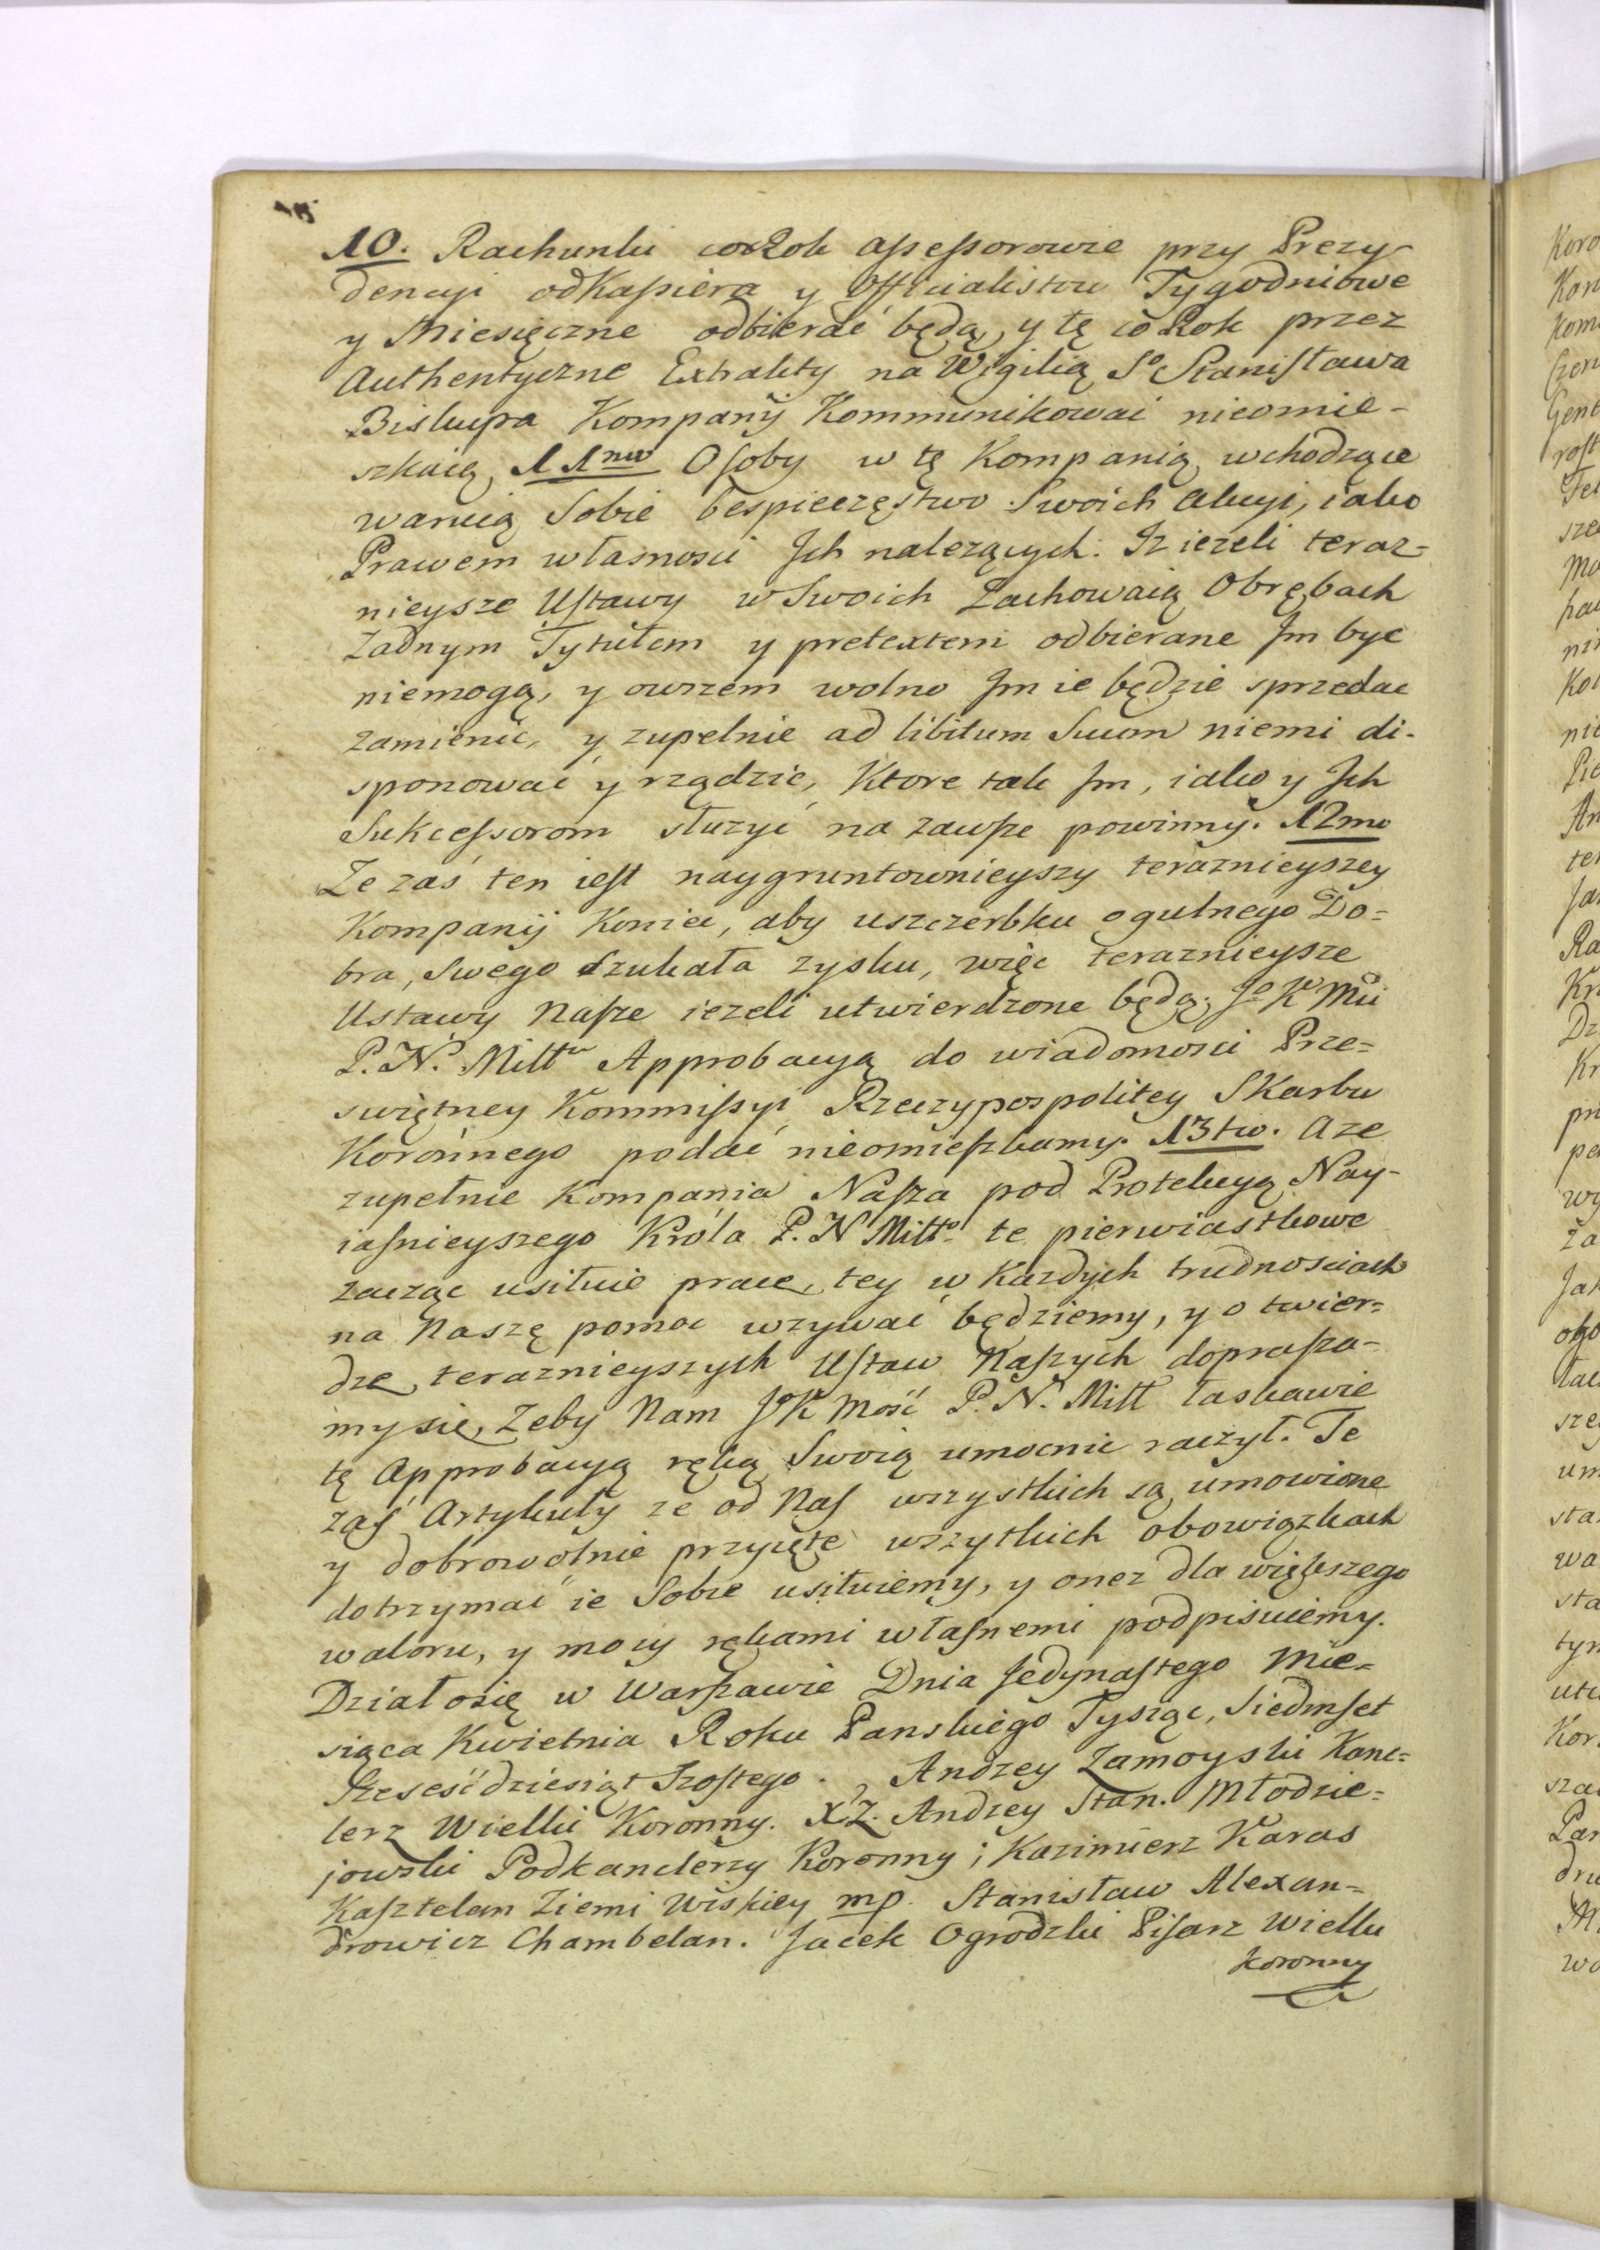 10. Rachunki coRok assessorowie przy Prezy-
dencyi odKassiera y Officialistow Tygodniowe
y Miesięczne odbierać będą, y tę coRok przez
Authentyczne Extrakty na Wigilią So Stanisława
Biskupa Kompanij Kommunikować nieomie-
szkaią, 11mo Osoby w tę Kompanią wchodzące
waruią Sobie bespieczęstwo Swoich akcyi, iako
Prawem własnosci Jch nalezących. Jz iezeli teraz-
nieysze Ustawy w Swoich Zachowaią Obrębach
Zadnym Tytułem y pretextem odbierane Jm byc
niemogą, y owszem wolno Jm ie będzie sprzedac
zamienic, y zupełnie ad libitum Suum niemi di-
sponować y rządzic, Ktore tak Jm, iako y Jch
Sukcessorom słuzyć na zawsze powinny. 12mo
Ze zaś ten iest naygruntownieyszy teraznieyszey
Kompanij Koniec, aby uszczerbku ogulnego Do-
bra, Swego szukała zysku, więc teraznieysze
Ustawy Nasze iezeli utwierdzone będą Jo Kr Mci
P. N. Mitt Approbacyą do wiadomosci Prze-
swiętney Kommissyi Rzeczypospolitey Skarbu
Koronnego podać nieomieszkamy. 13tio. a ze
zupełnie Kompania Nasza pod Protekcyą Nay-
iasnieyszego Króla P. N Mitto te pierwiastkowe
zacząc usiłuie prace, tey w Kazdych trudnosciach
na Naszę pomoc wzywać będziemy, y o twier-
dze teraznieyszych Ustaw Naszych doprasza-
my sie, Zeby Nam JK Mość P. N. Mitt łaskawie
tę Approbacyą ręką Swoią umocnic raczył. Te
zaś Artykuły ze od Nas wszystkich są umowione
y dobrowolnie przyięte wszytkich obowiązkach
dotrzymać ie Sobie usiłuiemy, y onez dla większego
waloru, y mocy rękami własnemi podpisuiemy.
Działosię w Warszawie Dnia Jedynastego Mie-
siąca Kwietnia Roku Panskiego Tysząc, Siedmset
Szesćdziesiąt Szostego. Andrzey Zamoyski Kanc-
lerz Wielki Koronny. XZ. Andrzey Stan. Młodzie-
jowski Podkanclerzy Koronny; Kazimierz Karas
Kasztelan Ziemi Wiskiey mp. Stanisław Alexan-
drowicz Chambelan. Jacek Ogrodzki Pisarz Wielki
Koronny